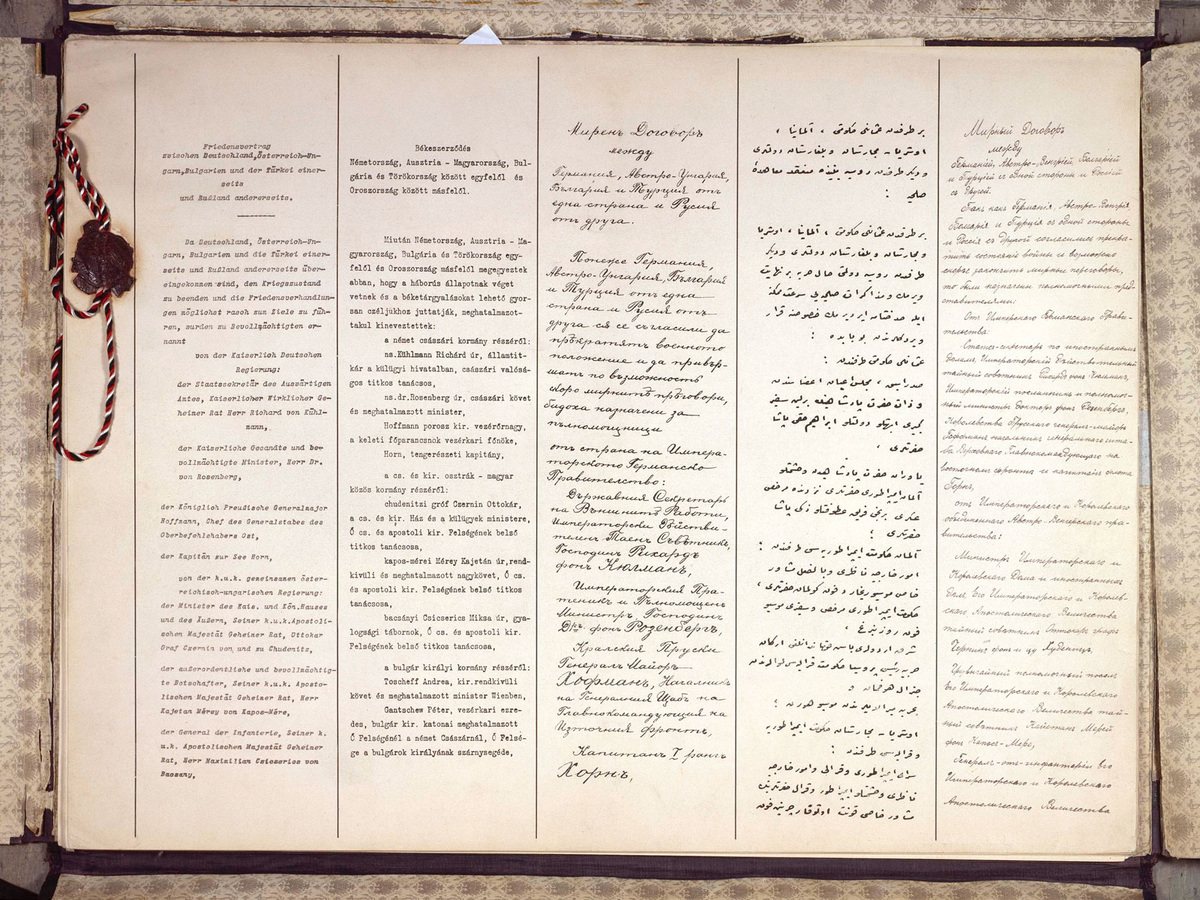 Friedensvertrag
zwischen Deutschland, Österreich-Un-
garn, Bulgarien und der Türkei einer-
seits
und Rußland andererseits.
Da Deutschland, Österreich-Un-
garn, Bulgarien und die Türkei einer-
seits und Rußland andererseits über-
eingekommen sind, den Kriegszustand
zu beenden und die Friedensverhandlun-
gen möglichst rasch zum Ziele zu füh-
ren, wurden zu Bevollmächtigten er-
nannt
von der Kaiserlich Deutschen
Regierung:
der Staatssekretär des Auswärtigen
Amtes, Kaiserlicher Wirklicher Ge-
heimer Rat Herr Richard von Kühl-
mann,
der Kaiserliche Gesandte und be-
vollmächtigte Minister, Herr Dr.
von Rosenberg,
der Königlich Preußische Generalmajor
Hoffmann, Chef des Generalstabes des
Oberbefehlshabers Ost,
der Kapitän zur See Horn,
von der k.u.k. gemeinsamen öster-
reichisch-ungarischen Regierung:
der Minister des Kais. und Kön. Hauses
und des Äußern, Seiner k.u.k. Apostoli-
schen Majestät Geheimer Rat, Ottokar
Graf Czernin von und zu Chudenitz,
der außerordentliche und bevollmächtig-
te Botschafter, Seiner k.u.k. Aposto-
lischen Majestät Geheimer Rat, Herr
Kajetan Mérey von Kapos-Mére,
der General der Infanterie, Seiner k.
u.k. Apostolischen Majestät Geheimer
Rat, Herr Maximilian Csicserics von
Bacsany,
Békeszerződés
Németország, Ausztria - Magyarország, Bul-
gária és Törökország között egyfelől és
Oroszország között másfelől.
Miután Németország, Ausztria - Ma-
gyarország, Bulgária és Törökország egy-
felől és Oroszország másfelől megegyeztek
abban, hogy a háborús állapotnak véget
vetnek és a béketárgyalásokat lehető gyor-
san czéljukhoz juttatják, meghatalmazot-
takul kineveztettek:
a német császári kormány részéről:
ns.Kühlmann Richárd úr, államtit-
kár a külügyi hivatalban, császári valósá-
gos titkos tanácsos,
ns.dr.Rosenberg úr, császári követ
és meghatalmazott minister,
Hoffmann porosz kir. vezérőrnagy,
a keleti főparancsnok vezérkari főnöke,
Horn, tengerészeti kapitány,
a cs. és kir. osztrák - magyar
közös kormány részéről:
chudenitzi gróf Czernin Ottokár,
a cs. és kir. Ház és a külügyek ministere,
Ő cs. és apostoli kir. Felségének belső
titkos tanácsosa,
kapos-mérei Mérey Kajetán úr, rend-
kivüli és meghatalmazott nagykövet, Ő cs.
és apostoli kir. Felségének belső titkos
tanácsosa,
bacsányi Csicserics Miksa úr, gya-
logsági tábornok, Ő cs. és apostoli kir.
Felségének belső titkos tanácsosa,
a bulgár királyi kormány részéről:
Toscheff Andrea, kir.rendkivüli
követ és meghatalmazott minister Wienben,
Gantschew Péter, vezérkari ezre-
des, bulgár kir. katonai meghatalmazott
Ő Felségénél a német Császárnál, Ő Felsé-
ge a bulgárok királyának szárnysegéde,
Миренъ Договоръ
между
Германия, Австро-Унгария,
България и Турция отъ
една страна и Русия
отъ друга.
Понеже Германия,
Австро-Унгария, България
и Турция отъ една
страна и Русия отъ
друга сѫ се съгласили да
прѣкратятъ военното
положение и да привър-
шатъ по възможность
скоро мирнитѣ прѣговори,
бидоха назначени за
пълномощници
отъ страна на Импера-
торското Германско
Правителство:
Държавния Секретаръ
на Външнитѣ Работи,
Императорски Дѣйстви-
теленъ Таенъ Съвѣтникъ,
Господинъ Рихардъ
фонъ Кюлманъ,
Императорския Пра-
теникъ и Пълномощенъ
Министръ, Господинъ
Д-ръ фонъ Розенбергъ,
Кралския Пруски
Генералъ Майоръ
Хофманъ, Началникъ
на Генералния Щабъ на
Главнокомандующия на
Източния фронтъ,
Капитанъ I рангъ
Хорнъ,
بر طرفدن عثمانلی حكومتی ، آلمانیا ،
اوستریا - مجارستان و بلغارستان دولتلری
و دیكر طرفدن روسیه بیننده منعقد معاهدهٔ
صلحیه :
بر طرفدن عثمانلی حكومتی ، آلمانیا ، اوستریا
و مجارستان و بلغارستان دولتلری و دیكر
طرفدن روسیه دولتی حال حربه نهایت
ویرمك و مذاكرات صلحیه‌یی سرعت ممكنه
ایله
عثمانلی حكومتی طرفندن :
صدر اسبق ، مجلس اعیان اعضاسندن
ابراهیم حقی پاشا
حضرتلری ،
زكی پاشا
حضرتلری ؛
آلمان حكومت ایمپراطوریه‌سی طرفندن :
امور خارجیه ناظری
فون كولمان حضرتلری ،
فون روزنبرغ ،
Мирный Договоръ
между
Германіей, Австро-Венгріей, Болгаріей
и Турціей съ одной стороны и Россіей
съ другой.
Такъ какъ Германія, Австро-Венгрія
Болгарія и Турція съ одной стороны
и Россія съ другой согласились прекра-
тить состояніе войны и возможно
скорѣе закончить мирные переговоры,
то были назначены полномочными пред-
ставителями:
Отъ Императорскаго Германскаго Прави-
тельства:
Статсъ-секретарь по иностраннымъ
дѣламъ, Императорскій Дѣйствительный
тайный совѣтникъ Рихардъ фонъ Кюльманъ,
Императорскій посланникъ и полномоч-
ный министръ Докторъ фонъ Розенбергъ,
Королевства Прусскаго генералъ-майоръ
Гофманъ, начальникъ генеральнаго шта-
ба Верховно-Главнокомандующаго на
восточномъ фронтѣ и капитанъ флота
Горнъ,
отъ Императорскаго и Королевскаго
объединеннаго Австро-Венгерскаго пра-
вительства:
Министръ Императорскаго и
Королевскаго Дома и иностранныхъ
дѣлъ, Его Императорскаго и Королев-
скаго Апостолическаго Величества
тайный совѣтникъ Оттокаръ графъ
Чернинъ фонъ и цу Худеницъ,
Чрезвычайный и полномочный посолъ
Его Императорскаго и Королевскаго
Апостолическаго Величества тай-
ный совѣтникъ Кайетанъ Мерей
фонъ Капосъ-Мере,
Генералъ-отъ-инфантеріи Его
Императорскаго и Королевскаго
Апостолическаго Величества